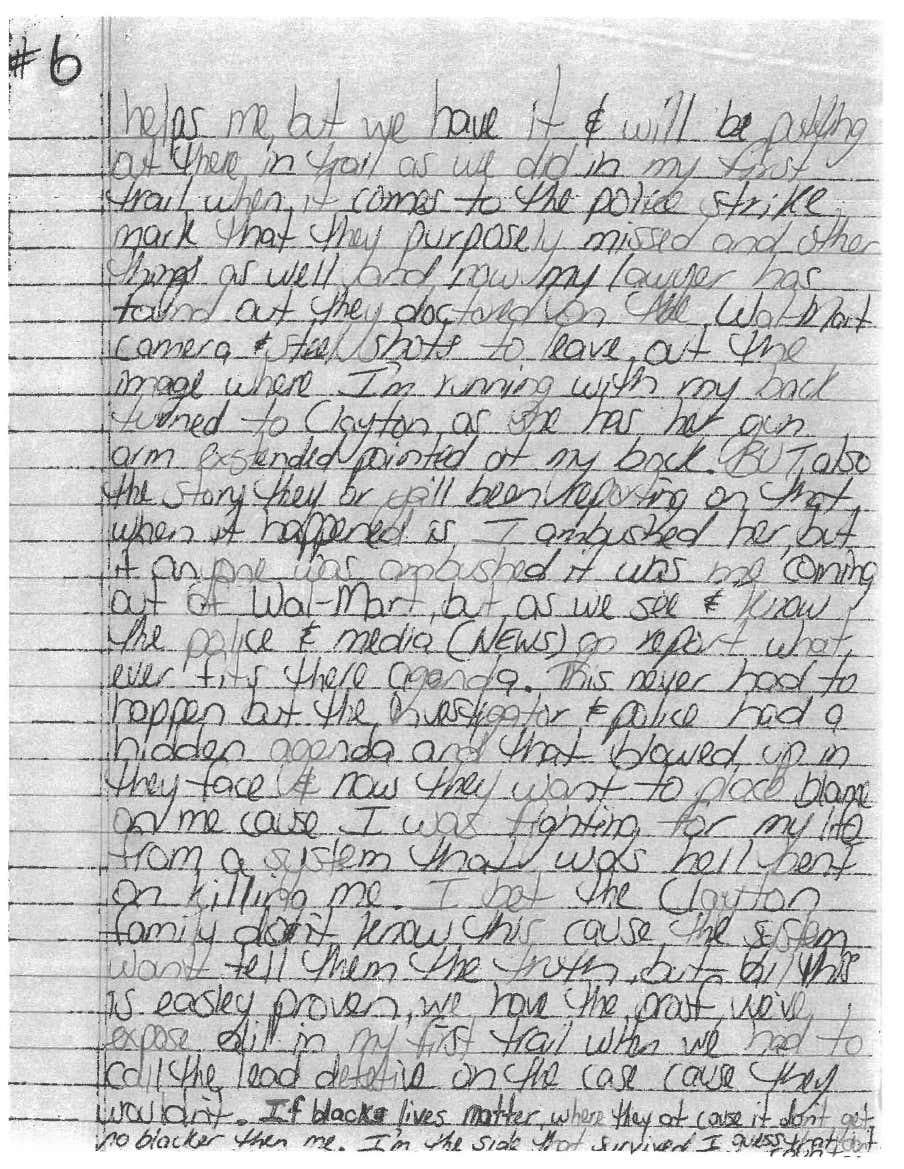 #6
helps me, but we have it & will be putting
out there in trail as we did in my first
trail when it comes to the police strike
mark that they purposely missed and other
things as well and now my lawyer has
found out they doctored on the Wal-Mart
camera & steel shots to leave out the
image where I'm running with my back
turned to Clayton as she has her gun
arm exstended pointed at my back. BUT, also
the story they or still been reporting on that
when it happened is I ambushed her, but
if anyone was ambushed it was me coming
out of Wal-Mart, but as we see & know
the police & media (NEWS) go report what
ever fits there agenda. This never had to
happen but the investigator & police had a
hidden agenda and that blowed up in
they face & now they want to place blame
on me cause I was fighting for my life
from a system that was hell bent
on killing me. I bet the Clayton
family don't know this cause the system
want tell them the truth, but all this
is easley proven, we have the proof, we've
expose all in my first trail when we had to
call the lead detetive on the case cause they
wouldn't. If blacks lives matter, where they at cause it don't get
no blacker then me. I'm the side that survived I guess that don't